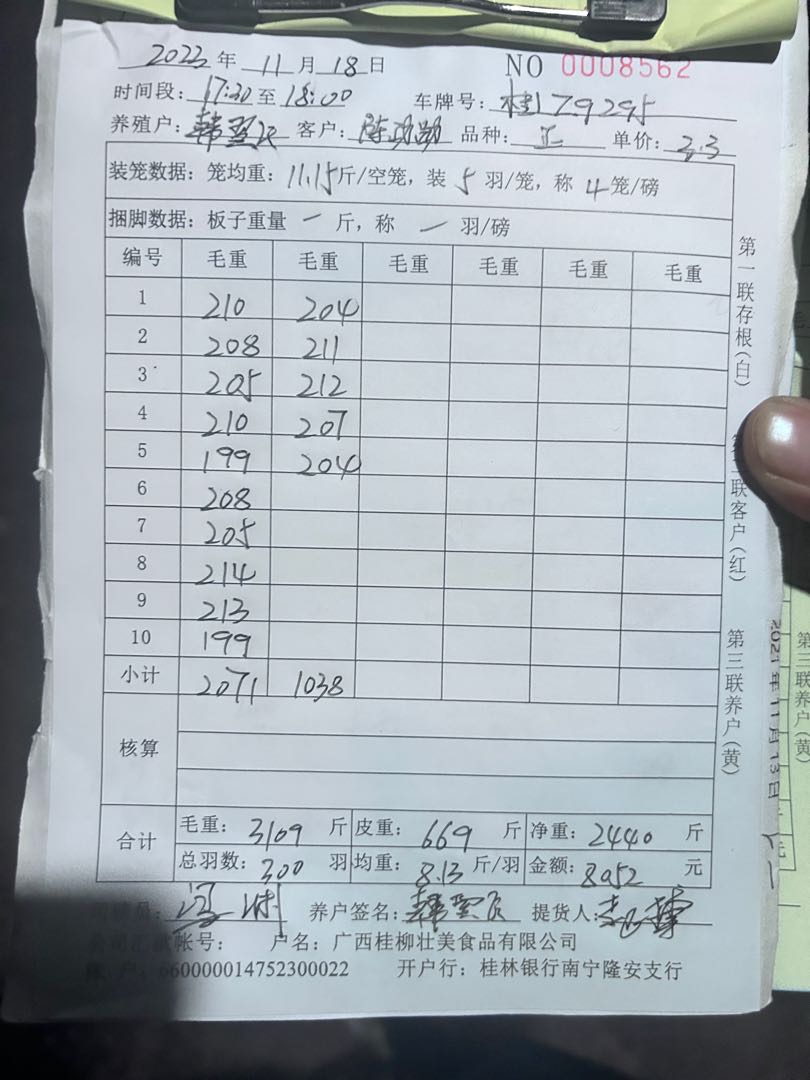 2022年11月18日 NO 0008562
时间段：17:30至18:00 车牌号：桂Z9295
养殖户：韩 客户：陈 品种：正 单价：3.3
装笼数据：笼均重：11.15斤/空笼，装5羽/笼，称4笼/磅
捆脚数据：板子重量 一 斤，称 一 羽/磅
编号 毛重 毛重 毛重 毛重 毛重 毛重
1 210 204
2 208 211
3 205 212
4 210 207
5 199 204
6 208
7 205
8 214
9 213
10 199
小计 2071 1038
核算
合计 毛重：3109斤 皮重：669斤 净重：2440斤
总羽数：300羽 均重：8.13斤/羽 金额：8052元
员： 养户签名：韩 提货人：
帐号： 户名：广西桂柳壮美食品有限公司
户：660000014752300022 开户行：桂林银行南宁隆安支行
第一联存根(白)
联客户(红)
第三联养户(黄)
2021年11月13日
第三联养户(黄)
元